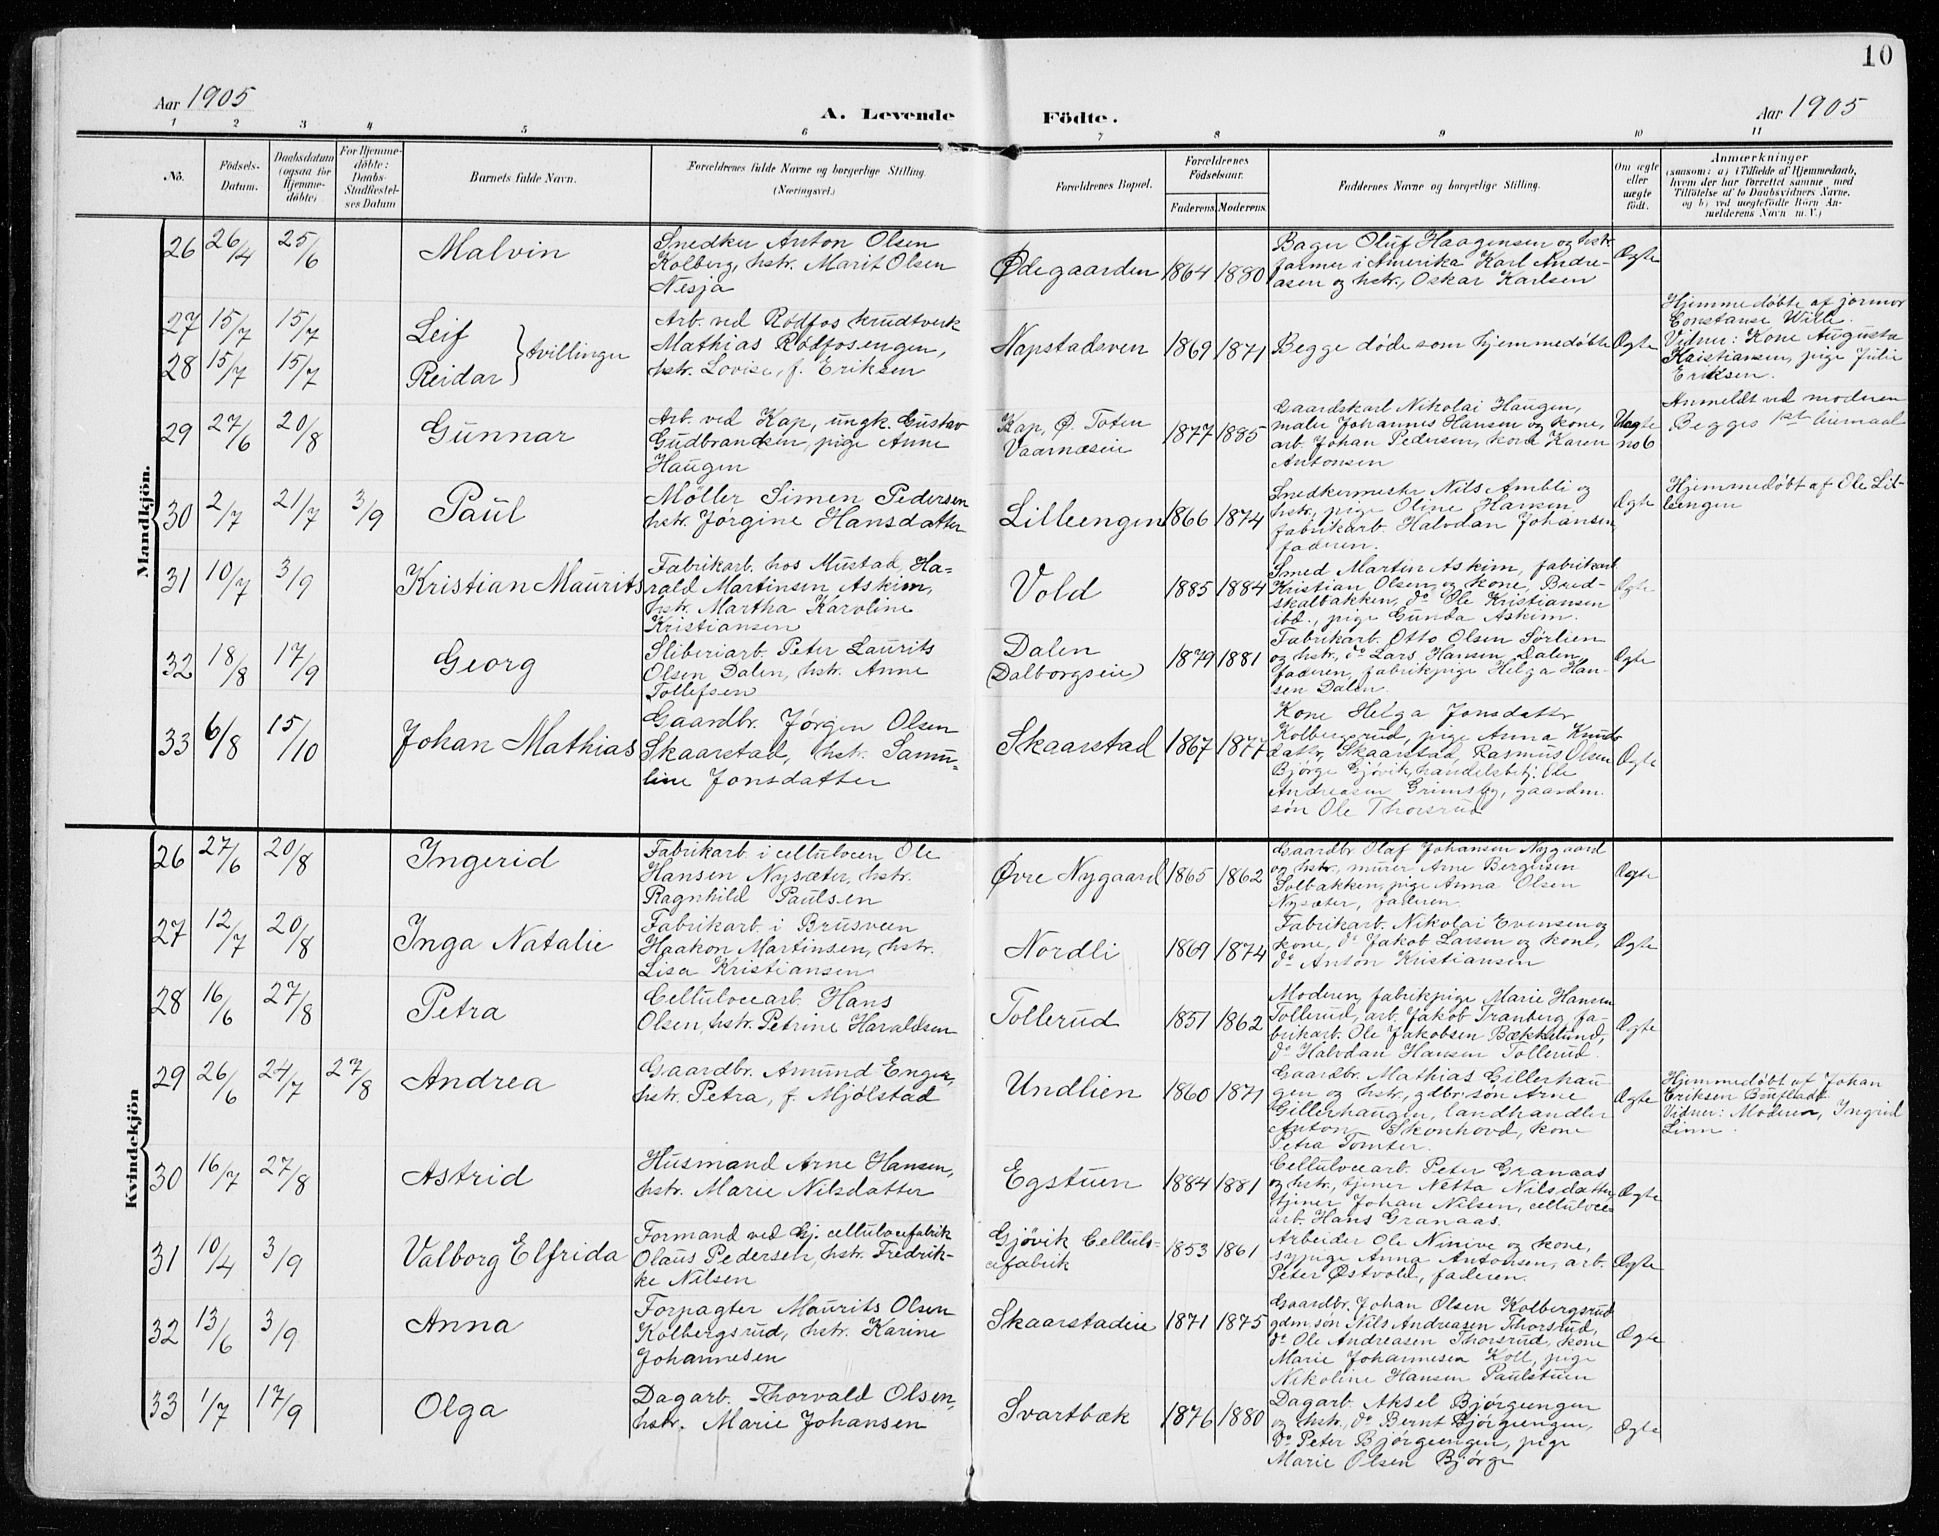 10
Aar 1905
A. Levende Födte.
Aar 1905
1 2 3 4 5 6 7 8 9 10 11
No.
Födsels-
Datum.
Daabsdatum
(ogsaa for
Hjemme-
döbte)
For Hjemme-
döbte:
Daabs-
Stadfæstel-
ses Datum
Barnets fulde Navn.
Forældrenes fulde Navne og borgerlige Stilling.
(Næringsvei.)
Forældrenes Bopæl.
Forældrenes
Födselsaar.
Faderens. Moderens.
Faddernes Navne og borgerlige Stilling.
Om ægte
eller
uægte
födt.
Anmærkninger
(saasom: a) i Tilfælde af Hjemmedaab,
hvem der har forrettet samme med
Tilföielse af to Daabsvidners Navne,
og b) ved uægtefödte Börn An-
melderens Navn m. V.)
Mandkjön.
26 26/4 25/6 Malvin
Snedker Anton Olsen
Kolberg, hstr. Marit Olsen
Nesja
Ødegaarden 1864 1880
Bager Oluf Haagensen og hstr.
farmer i Amerika Karl Andre-
asen og hstr., Oskar Karlsen
Ægte
27 15/7 15/7 Leif
28 15/7 15/7 Reidar
Tvillinger
Arb. ved Rødfos krudtverk
Mathias Rødfosengen,
hstr. Lovise, f. Eriksen
Hapstadsven 1869 1871
Begge døde som hjemmedøbte
Ægte
Hjemmedøbte af jormor
Constanse Wille.
Vidner: Kone Augusta
Kristiansen, pige Julie
Eriksen.
29 27/6 20/8 Gunnar
Arb. ved Kap, ungk. Gustav
Gudbrandsen, pige Anne
Haugen
Kap, Ø. Toten
Vaarnæseie
1877 1885
Gaardskarl Nikolai Haugen,
maler Johannes Hansen og kone,
arb. Johan Pedersen, kone Karen
Antonsen
Uægte
no 6
Anmeldt ved moderen
Begges 1st leiermaal
30 2/7 21/7 3/9 Paul
Møller Simen Pedersen
hstr. Jørgine Hansdatter
Lilleengen 1866 1874
Snedkermester Nils Ambli og
hstr., pige Oline Hansen
fabrikarb. Halvdan Johansen,
faderen.
Ægte
Hjemmedøbt af Ole Lil-
leengen
31 10/7 3/9 Kristian Maurits
Fabrikarb. hos Mustad, Ha-
rald Martinsen Askim,
hstr. Martha Karoline
Kristiansen
Vold 1885 1884
Smed Martin Askim, fabrikarb.
Kristian Olsen og kone, Bred-
skalbakken, do Ole Kristiansen
ibd., pige Gunda Askim.
Ægte
32 18/8 17/9 Georg
Sliberiarb. Peter Laurits
Olsen Dalen, hstr. Anne
Tollefsen
Dalen
(Dalborgseie)
1879 1881
Fabrikarb. Otto Olsen Sørlien
og hstr., do Lars Hansen Dalen,
faderen, fabrikpige Helga Han-
sen Dalen.
Ægte
33 6/8 15/10 Johan Mathias
Gaardbr. Jørgen Olsen
Skaarstad, hstr. Samu-
line Jonsdatter
Skaarstad 1867 1877
Kone Helga Jonsdatter
Kolbergsrud, pige Anna Knuds-
datter, Skaarstad, Rasmus Olsen
Bjørge Gjøvik, handelsbetj. Ole
Andreasen Grimsby, gaardm.
søn Ole Thorsrud
Ægte
Kvindekjön
26 27/6 20/8 Ingerid
Fabrikarb. i celluloeen Ole
Hansen Nysæter, hstr.
Ragnhild Paulsen
Øvre Nygaard 1865 1862
Gaardbr. Olaf Johansen Nygaard
og hstr., murer Arne Bergersen
Solbakken, pige Anna Olsen
Nysæter, faderen.
Ægte
27 12/7 20/8 Inga Natalie
Fabrikarb. i Brusveen
Haakon Martinsen, hstr.
Lisa Kristiansen
Nordli 1869 1874
Fabrikarb. Nikolai Evensen og
kone, do Jakob Larsen og kone,
do Anton Kristiansen
Ægte
28 16/6 27/8 Petra
Celluloearb. Hans
Olsen, hstr. Petrine Haraldsen
Tollerud 1851 1862
Moderen, fabrikpige Marie Hansen
Tollerud, arb. Jakob Tranberg, fa-
brikarb. Ole Jakobsen Bækkelund,
do Halvdan Hansen Tollerud.
Ægte
29 26/6 24/7 27/8 Andrea
Gaardbr. Amund Enger,
hstr. Petra, f. Mjølstad
Undlien 1860 1871
Gaardbr. Mathias Gillerhau-
gen og hstr., gdbr.søn Arne
Gillerhaugen, landhandler
Anton Skonhovd, kone
Petra Tomter.
Ægte
Hjemmedøbt af Johan
Eriksen Bufladt
Vidner: Moderen, Ingrid
Linn.
30 16/7 27/8 Astrid
Husmand Arne Hansen,
hstr. Marie Nilsdatter
Egstuen 1884 1881
Celluloearb. Peter Granaas
og hstr., tjener Netta Nilsdatter,
tjener Johan Nilsen, celluloe-
arb. Hans Granaas.
Ægte
31 10/4 3/9 Valborg Elfrida
Formand ved Gj. celluloefabrik
Olaus Pedersen, hstr. Fredrik-
ke Nilsen
Gjøvik Cellulo-
sefabrik
1853 1861
Arbeider Ole Ninive og kone,
sypige Anna Antonsen, arb.
Peter Østvold, faderen.
Ægte
32 13/6 3/9 Anna
Forpagter Maurits Olsen
Kolbergsrud, hstr. Karine
Johannesen
Skaarstadeie 1871 1875
Gaardbr. Johan Olsen Kolbergsrud
gdm.søn Nils Andreasen Thorsrud,
do Ole Andreasen Thorsrud, kone
Marie Johannesen Koll, pige
Nikoline Hansen Paulstuen
Ægte
33 1/7 17/9 Olga
Dagarb. Thorvald Olsen,
hstr. Marie Johansen
Svartbæk 1876 1880
Dagarb. Aksel Bjørgeengen
og hstr., do Bernt Bjørgeengen,
do Peter Bjørgeengen, pige
Marie Olsen Bjørge
Ægte